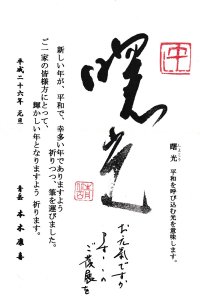 曙光
曙光　平和を呼び込む光を意味します。
新しい年が、平和で、幸多い年でありますよう
祈りつつ、筆を運びました。
ご一家の皆様方にとって、
輝かしい年となりますよう 祈ります。
平成二十六年 元旦
お元気ですか
ご発展を